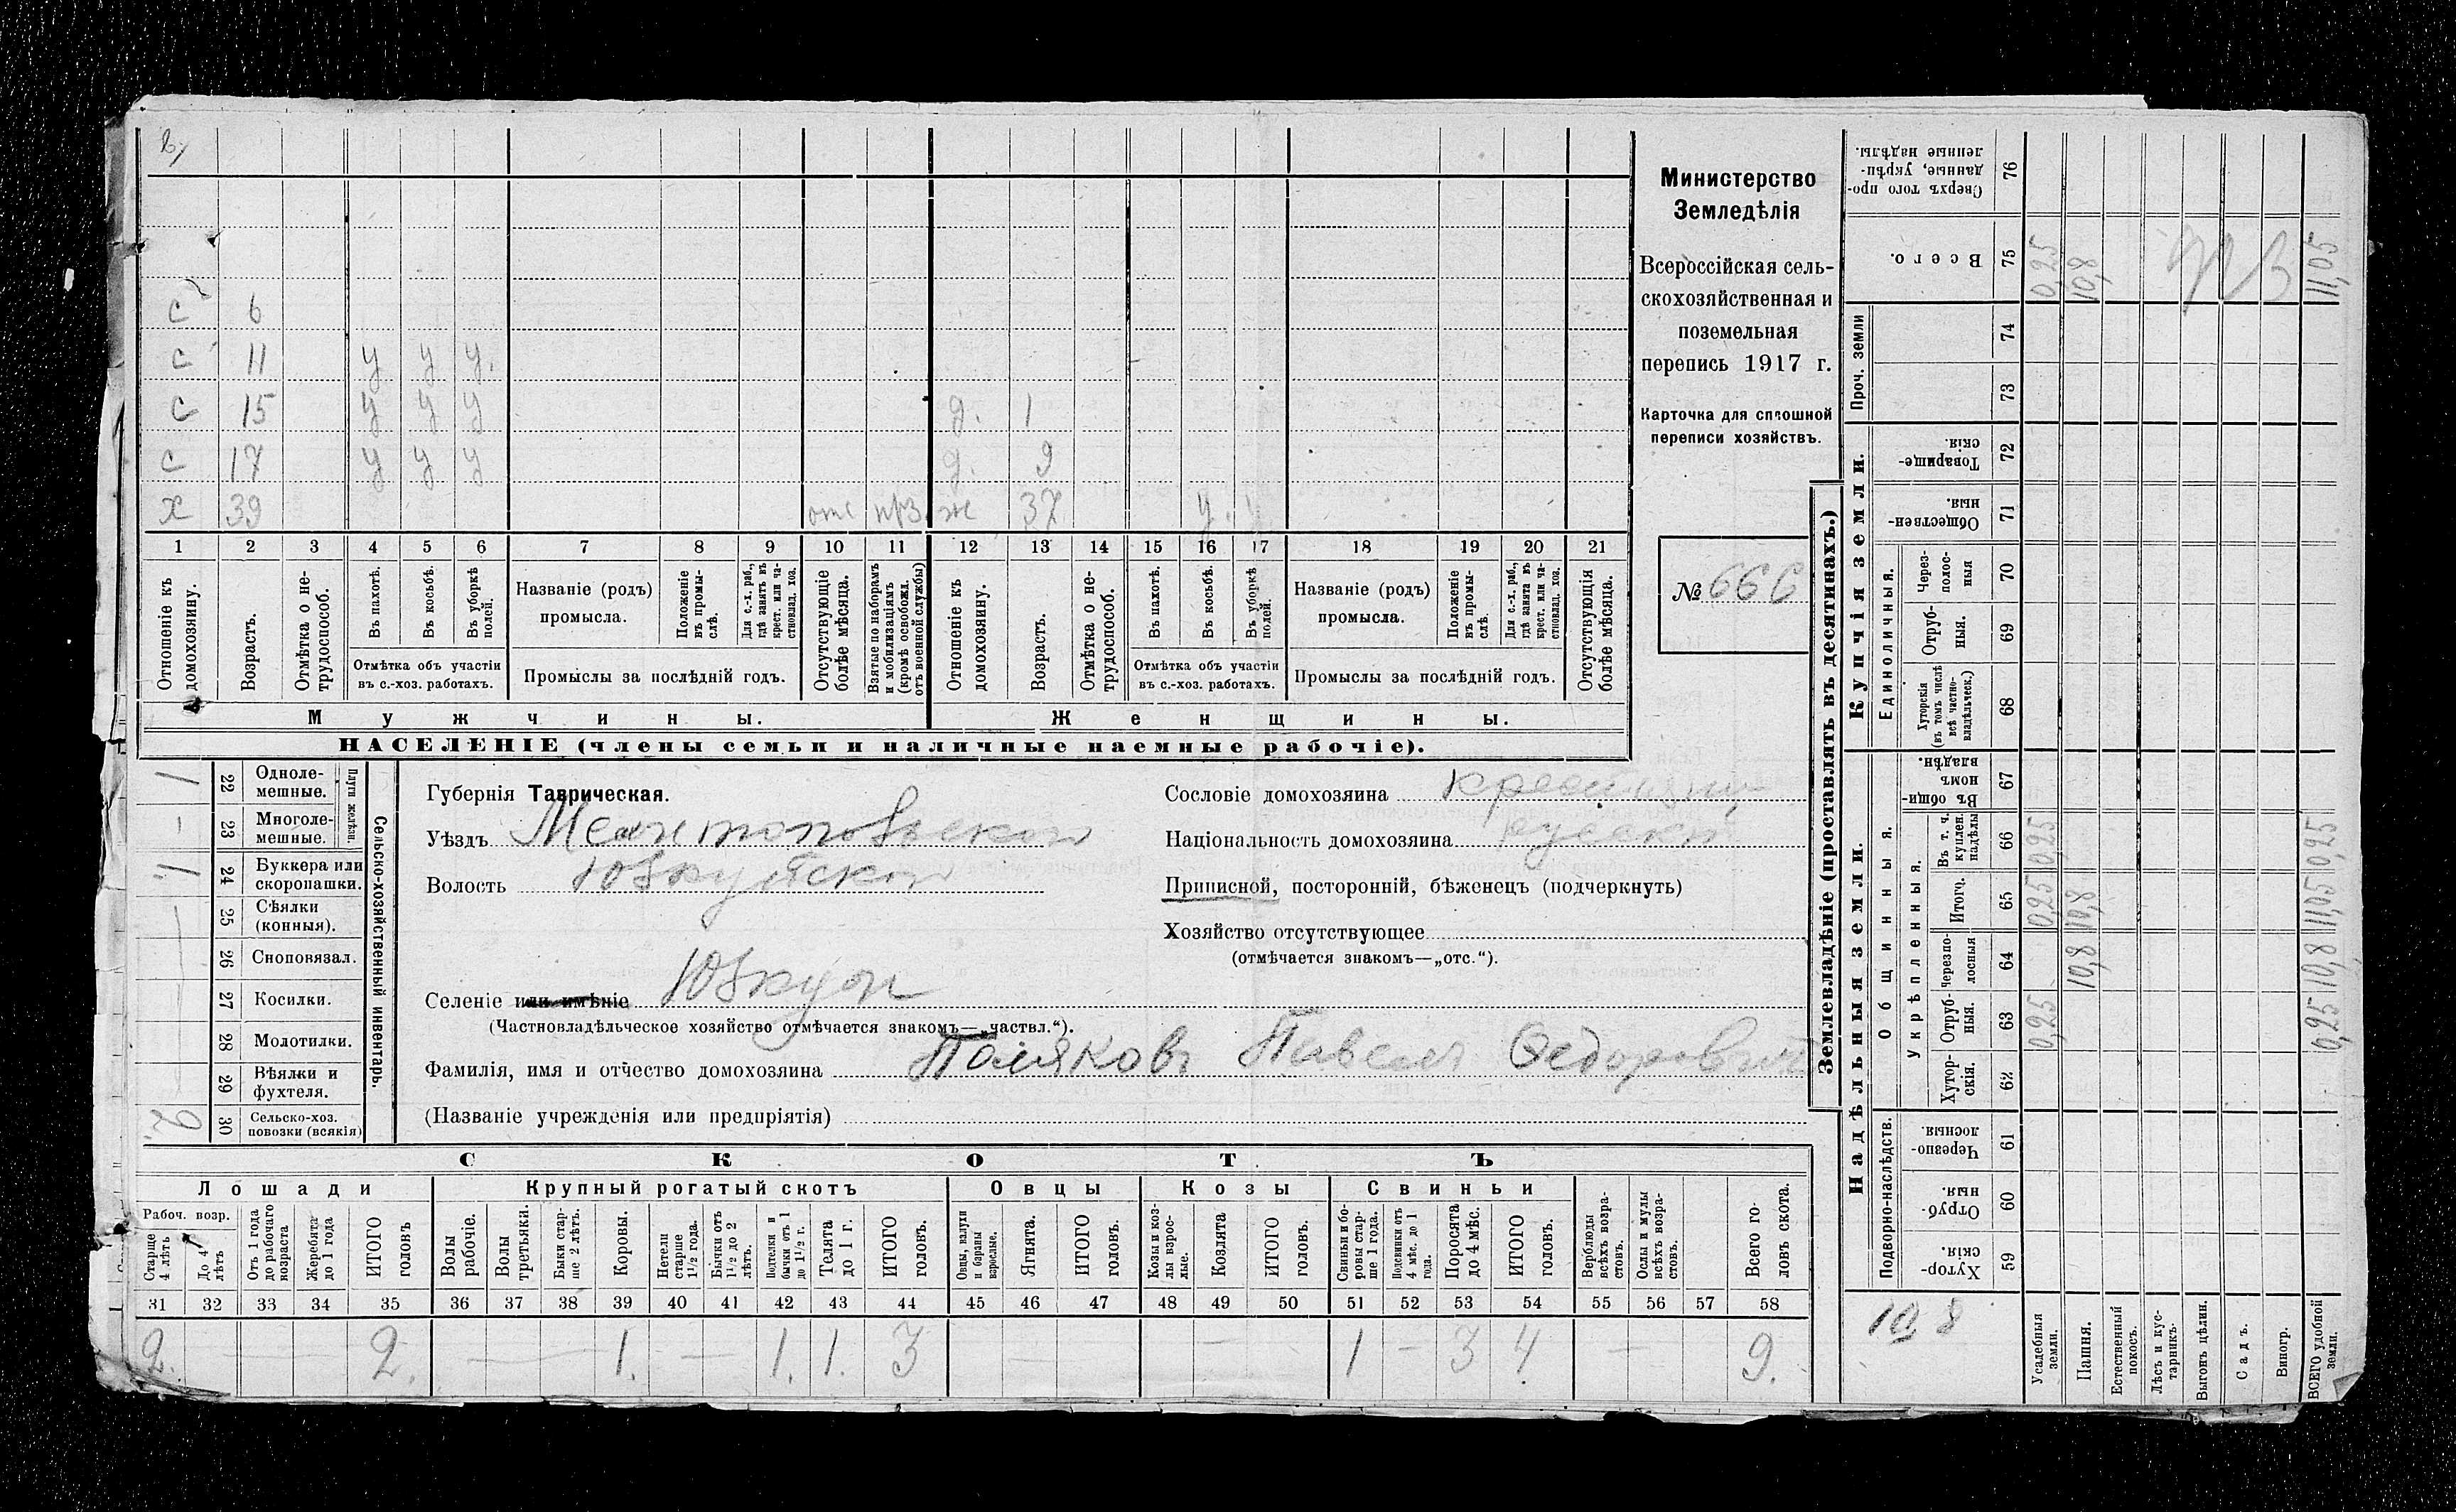 с 6
с 11 у у у.
с 15 у у у д. 1
с 17 у у у д. 9
х 39 отс прз. ж 37 у. у
1 2 3 4 5 6 7 8 9 10 11 12 13 14 15 16 17 18 19 20 21
Отношеніе къ домохозяину.
Возрастъ.
Отмѣтка о не-трудоспособ.
Въ пахотѣ.
Въ косьбѣ.
Въ уборкѣ полей.
Отмѣтка объ участіи въ с.-хоз. работахъ.
Названіе (родъ) промысла.
Положеніе въ промы-слѣ.
Для с.-х. раб., гдѣ занятъ въ крест. или ча-стновлад. хоз.
Промыслы за послѣдній годъ.
Отсутствующіе болѣе мѣсяца.
Взятые по наборамъ и мобилизаціямъ (кромѣ освобожд. отъ военной службы)
Отношеніе къ домохозяину.
Возрастъ.
Отмѣтка о не-трудоспособ.
Въ пахотѣ.
Въ косьбѣ.
Въ уборкѣ полей.
Отмѣтка объ участіи въ с.-хоз. работахъ.
Названіе (родъ) промысла.
Положеніе въ промы-слѣ.
Для с.-х. раб., гдѣ занята въ крест. или ча-стновлад. хоз.
Промыслы за послѣдній годъ.
Отсутствующія болѣе мѣсяца.
Мужчины. Женщины.
НАСЕЛЕНІЕ (члены семьи и наличные наемные рабочіе).
Министерство
Земледѣлія
Всероссійская сель-
скохозяйственная и
поземельная
перепись 1917 г.
Карточка для сплошной
переписи хозяйствъ.
№ 666
Сельско-хозяйственный инвентарь.
Плуги желѣзн.
1 22 Одноле-мешные.
- 23 Многоле-мешные.
1 24 Буккера или скоропашки.
25 Сѣялки (конныя).
26 Сноповязал.
27 Косилки.
28 Молотилки.
29 Вѣялки и фухтеля.
2 30 Сельско-хоз. повозки (всякія)
Губернія Таврическая.
Уѣздъ Мелитопольской
Волость Юзкуйской
Селеніе или имѣніе Юзкуи
(Частновладѣльческое хозяйство отмѣчается знакомъ—„частвл.“).
Фамилія, имя и отчество домохозяина Поляковъ Павелъ Федоровичъ
(Названіе учрежденія или предпріятія)
Сословіе домохозяина крестьянин
Національность домохозяина русскій
Приписной, посторонній, бѣженецъ (подчеркнуть)
Хозяйство отсутствующее
(отмѣчается знакомъ—„отс.“).
СКОТЪ
Лошади Крупный рогатый скотъ Овцы Козы Свиньи
Рабоч. возр.
Старше 4 лѣтъ
До 4 лѣтъ
Отъ 1 года до рабочаго возраста
Жеребята до 1 года
ИТОГО головъ
Волы рабочіе.
Волы третьяки.
Быки стар-ше 2 лѣтъ.
Коровы.
Нетели старше 1½ года.
Бычки отъ 1½ до 2 лѣтъ.
Подтелки и бычки отъ 1 до 1½ г.
Телята до 1 г.
ИТОГО головъ.
Овцы, валухи и бараны взрослые.
Ягнята.
ИТОГО головъ.
Козы и коз-лы взрос-лые.
Козлята
ИТОГО головъ.
Свиньи и бо-ровы стар-ше 1 года.
Подсвинки отъ 4 мѣс. до 1 года.
Поросята до 4 мѣс.
ИТОГО головъ.
Верблюды всѣхъ возра-стовъ.
Ослы и мулы всѣхъ возра-стовъ.
Всего го-ловъ скота.
31 32 33 34 35 36 37 38 39 40 41 42 43 44 45 46 47 48 49 50 51 52 53 54 55 56 57 58
2. 2. 1. - 1. 1. 3 1 - 3 4 9.
Землевладѣніе (проставлять въ десятинахъ.)
Сверхъ того про-данные, укрѣп-ленные надѣлы. 76
Всего. 75 0,25 10,8 11,05
Проч. земли 74 73
Купчія земли.
Товарище-скія. 72
Обществен-ныя. 71
Единоличныя.
Через-полос-ныя 70
Отруб-ныя. 69
Хуторскія (въ томъ числѣ всѣ частно-владѣльческ.) 68
Надѣльныя земли.
Общинныя.
Въ общи-номъ владѣн. 67
Укрѣпленныя.
Въ т. ч. куплен. надѣлы 66 0,25 0,25
Итого. 65 0,25 10,8 11,05
Черезпо-лосныя 64 10,8 10,8
Отруб-ныя. 63 0,25 0,25
Хутор-скія. 62
Подворно-наслѣдств.
Черезпо-лосныя. 61
Отруб-ныя. 60
Хутор-скія. 59
10,8
Усадебныя земли.
Пашня.
Естественный покосъ.
Лѣсъ и кус-тарникъ.
Выгонъ цѣлин.
Садъ.
Виногр.
ВСЕГО удобной земли.